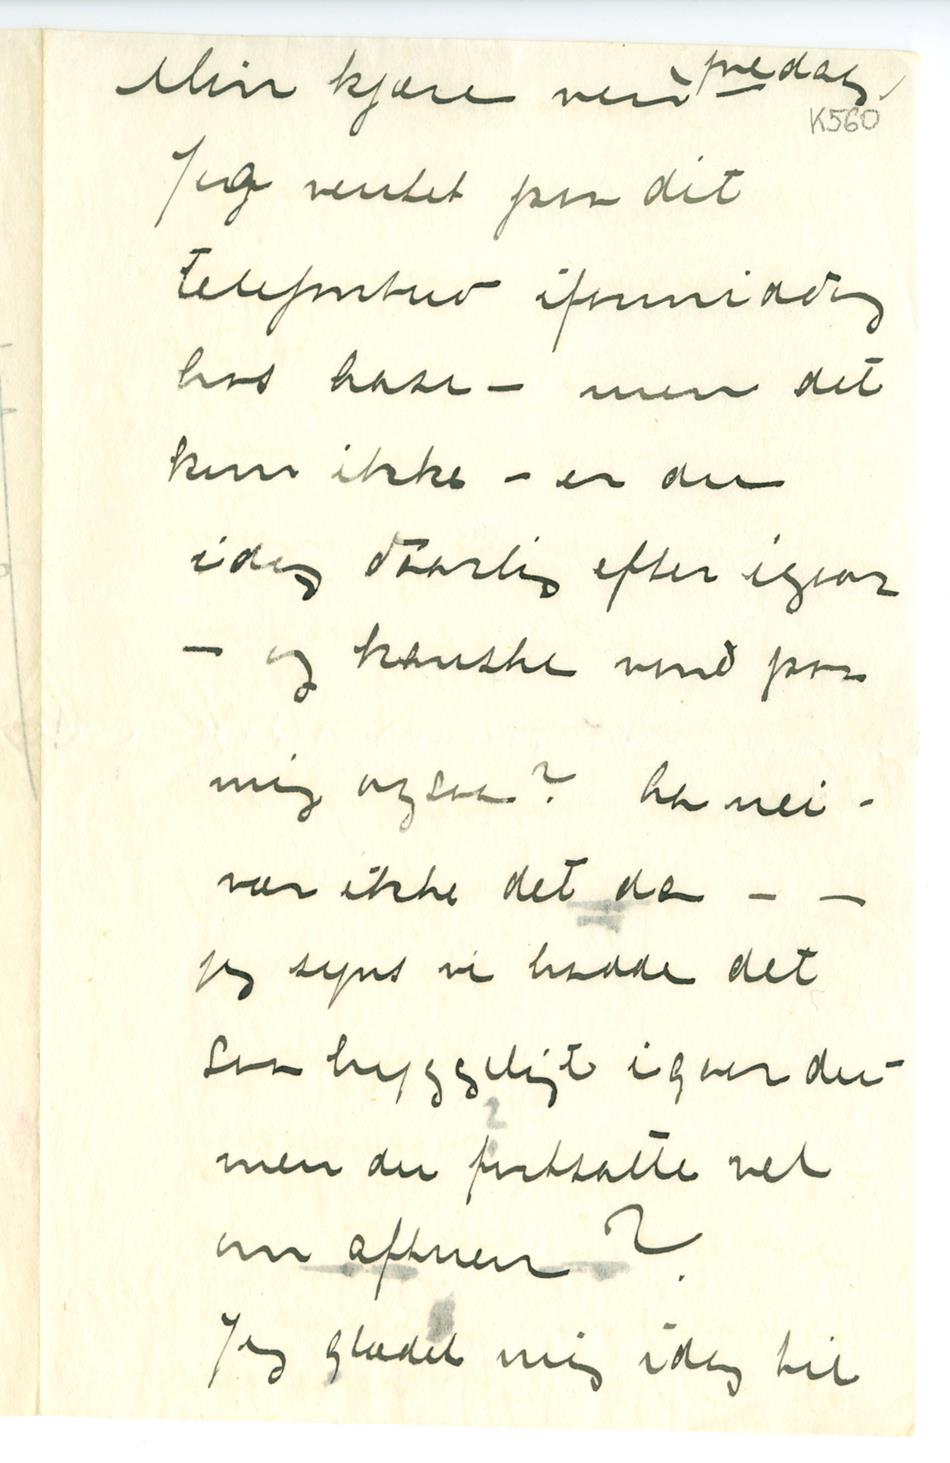 Min kjære ven – fredag
K560
Jeg ventet paa dit
telefonbud iformiddag
hos – men det
kom ikke – er du
idag daarlig efter igaar
– og kanske vond paa
mig ogsaa? ha nei –
vær ikke det da – –
jeg synes vi hadde det
saa hyggeligt igaar du –
men du fortsatte vel
om aftnen?
Jeg glædet mig idag til